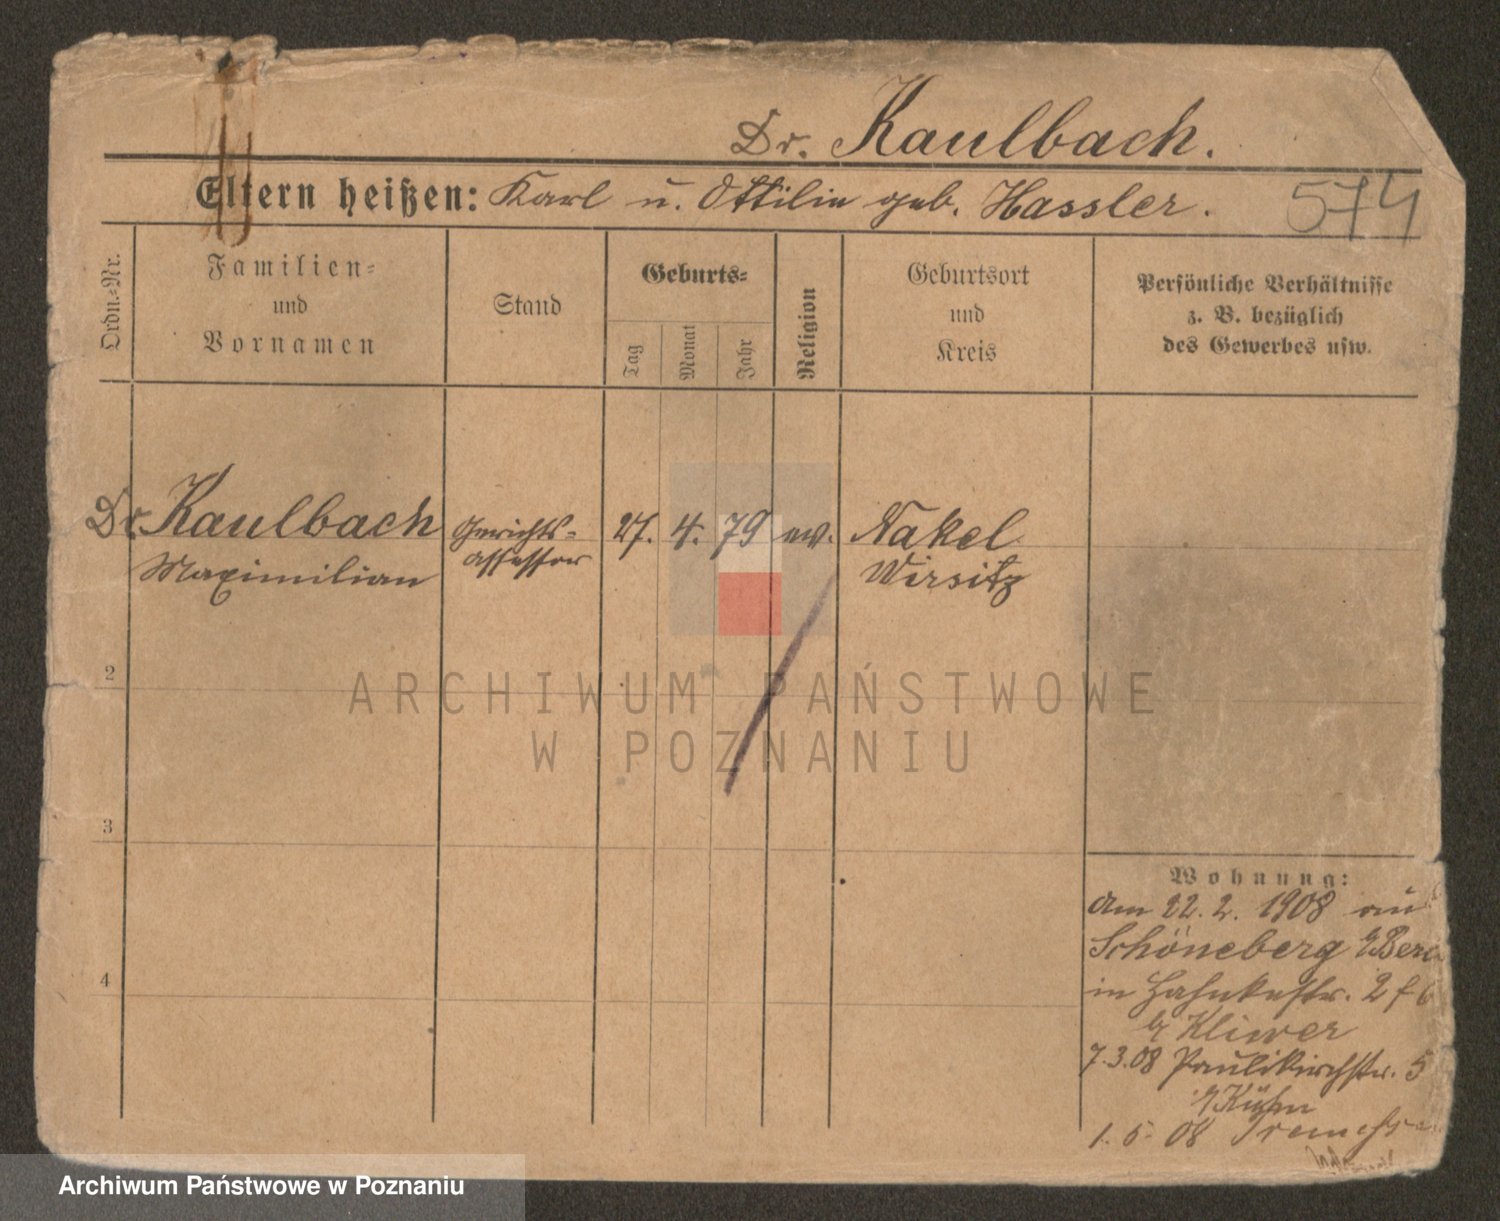 Dr. Kaulbach.
Eltern heißen: Karl u. Ottilie geb. Hassler.
574
Ordn.-Nr.
Familien-
und
Vornamen
Stand
Geburts-
Tag
Monat
Jahr
Religion
Geburtsort
und
Kreis
Persönliche Verhältnisse
z. B. bezüglich
des Gewerbes usw.
Dr. Kaulbach Gerichts- 27. 4. 79 ev. Nakel
Maximilian assessor Wirsitz
2
3
4
Wohnung:
am 22. 2. 1908 aus
Schöneberg
in 2
Kliwer
7.3.08 Paulikirchstr. 5
Kühn
1. 5. 08
ARCHIWUM PAŃSTWOWE
W POZNANIU
Archiwum Państwowe w Poznaniu